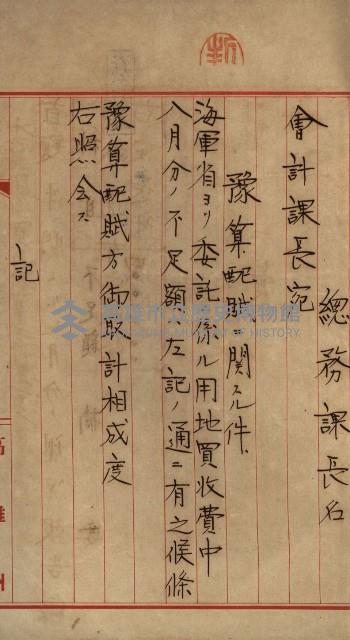 會計課長宛
總務課長名
豫算配賦ニ關スル件
海軍省ヨリ委託係ル用地買收費中
八月分ノ不足額左記ノ通ニ有之候條
豫算配賦方御取計相成度
右照會ス
記
高雄州